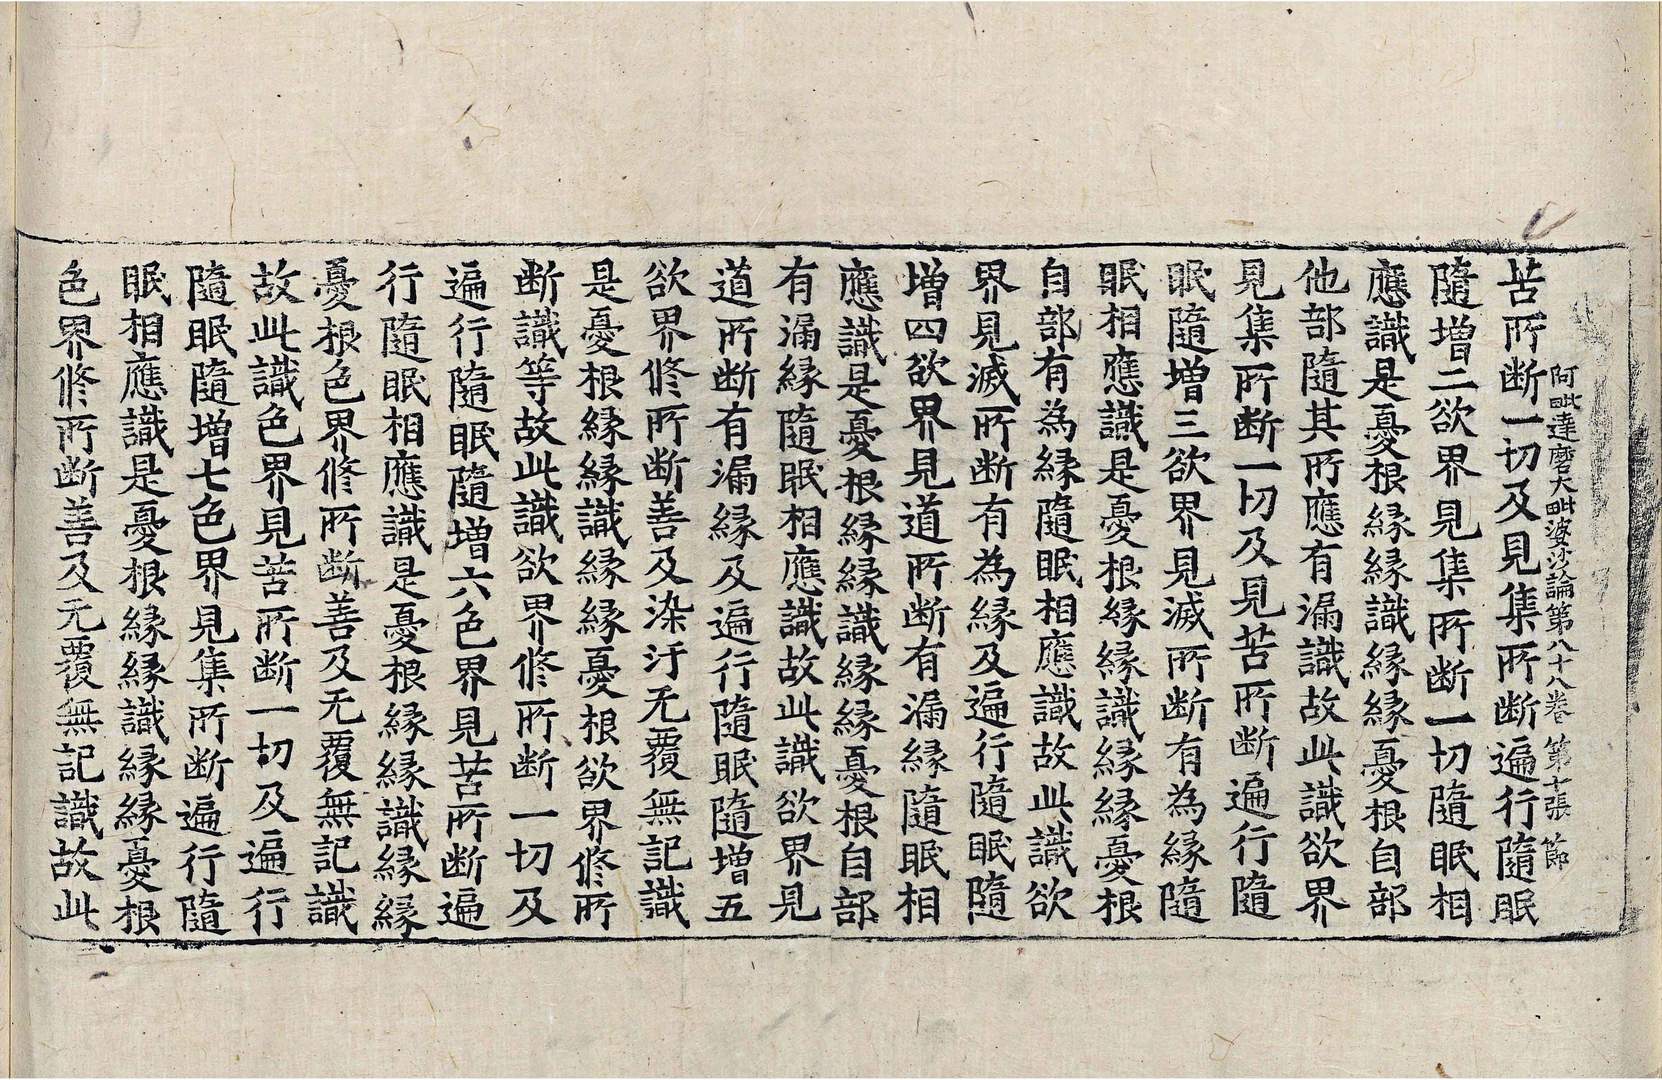 阿毗達磨大毗婆沙論第八十八卷 第十張 節
苦所断一切及見集所断遍行隨眠
隨增二欲界見集所断一切隨眠相
應識是憂根緣緣識緣緣憂根自部
他部隨其所應有漏識故此識欲界
見集所断一切及見苦所断遍行隨
眠隨增三欲界見滅所断有為緣隨
眠相應識是憂根緣緣識緣緣憂根
自部有為緣隨眠相應識故此識欲
界見滅所断有為緣及遍行隨眠隨
增四欲界見道所断有漏緣隨眠相
應識是憂根緣緣識緣緣憂根自部
有漏緣隨眠相應識故此識欲界見
道所断有漏緣及遍行隨眠隨增五
欲界修所断善及染汙无覆無記識
是憂根緣緣識緣緣憂根欲界修所
断識等故此識欲界修所断一切及
遍行隨眠隨增六色界見苦所断遍
行隨眠相應識是憂根緣緣識緣緣
憂根色界修所断善及无覆無記識
故此識色界見苦所断一切及遍行
隨眠隨增七色界見集所断遍行隨
眠相應識是憂根緣緣識緣緣憂根
色界修所断善及无覆無記識故此